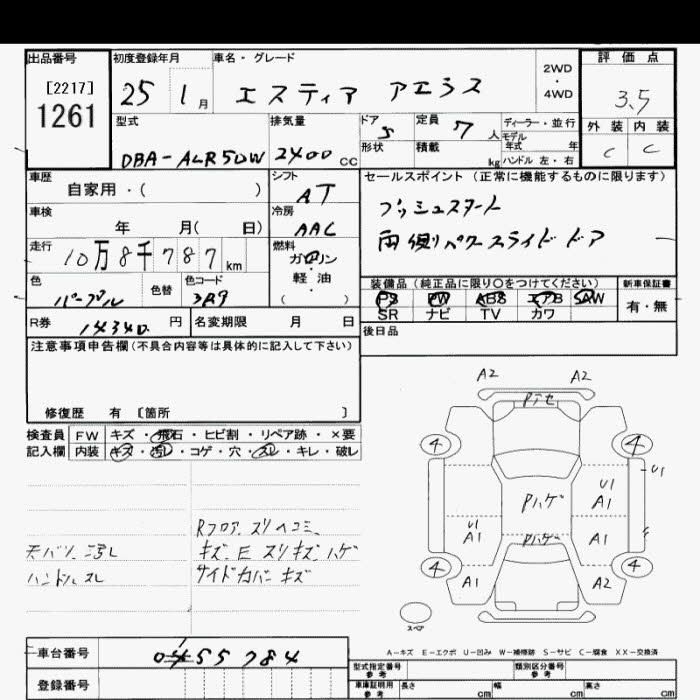 出品番号 初度登録年月 車名・グレード 評価点
[2217] 1261 25 1月 エスティマ アエラス 2WD・4WD 3.5
型式 排気量 ドア 定員 ディーラー・並行 外装 内装
DBA-ACR50W 2400cc 5 7人 モデル年式 年 C C
形状 積載 kg ハンドル 左・右
車歴 シフト セールスポイント (正常に機能するものに限ります)
自家用・( ) AT プッシュスタート
車検 冷房
年 月( 日) AAC 両側パワースライドドア
走行 燃料
10万8千787km ガソリン・軽油 ( )
色 色替 色コード 装備品 (純正品に限り○をつけてください) 新車保証書
パープル 3R9 PS PW ABS エアB AW 有・無
SR ナビ TV カワ
R券 14340円 名変期限 月 日 後日品
注意事項申告欄(不具合内容等は具体的に記入して下さい)
修復歴 有 [箇所 ]
検査員 FW キズ・飛石・ヒビ割・リペア跡・×要
記入欄 内装 キズ・汚レ・コゲ・穴・スレ・キレ・破レ
天バリ ヨゴレ
ハンドル スレ
Rフロア スリ ヘコミ
キズ E スリキズ ハゲ
サイドカバー キズ
A2 A2
4 4
U1
Pハゲ U1 A1
U1 A1 Pハゲ A1
4 4
A1 A2
スペア
A-キズ E-エクボ U-凹み W-補修跡 S-サビ C-腐食 XX-交換済
車台番号 0455784
登録番号
型式指定番号 参考 類別区分番号 参考
車庫証明用 参考 長さ cm 幅 cm 高さ cm